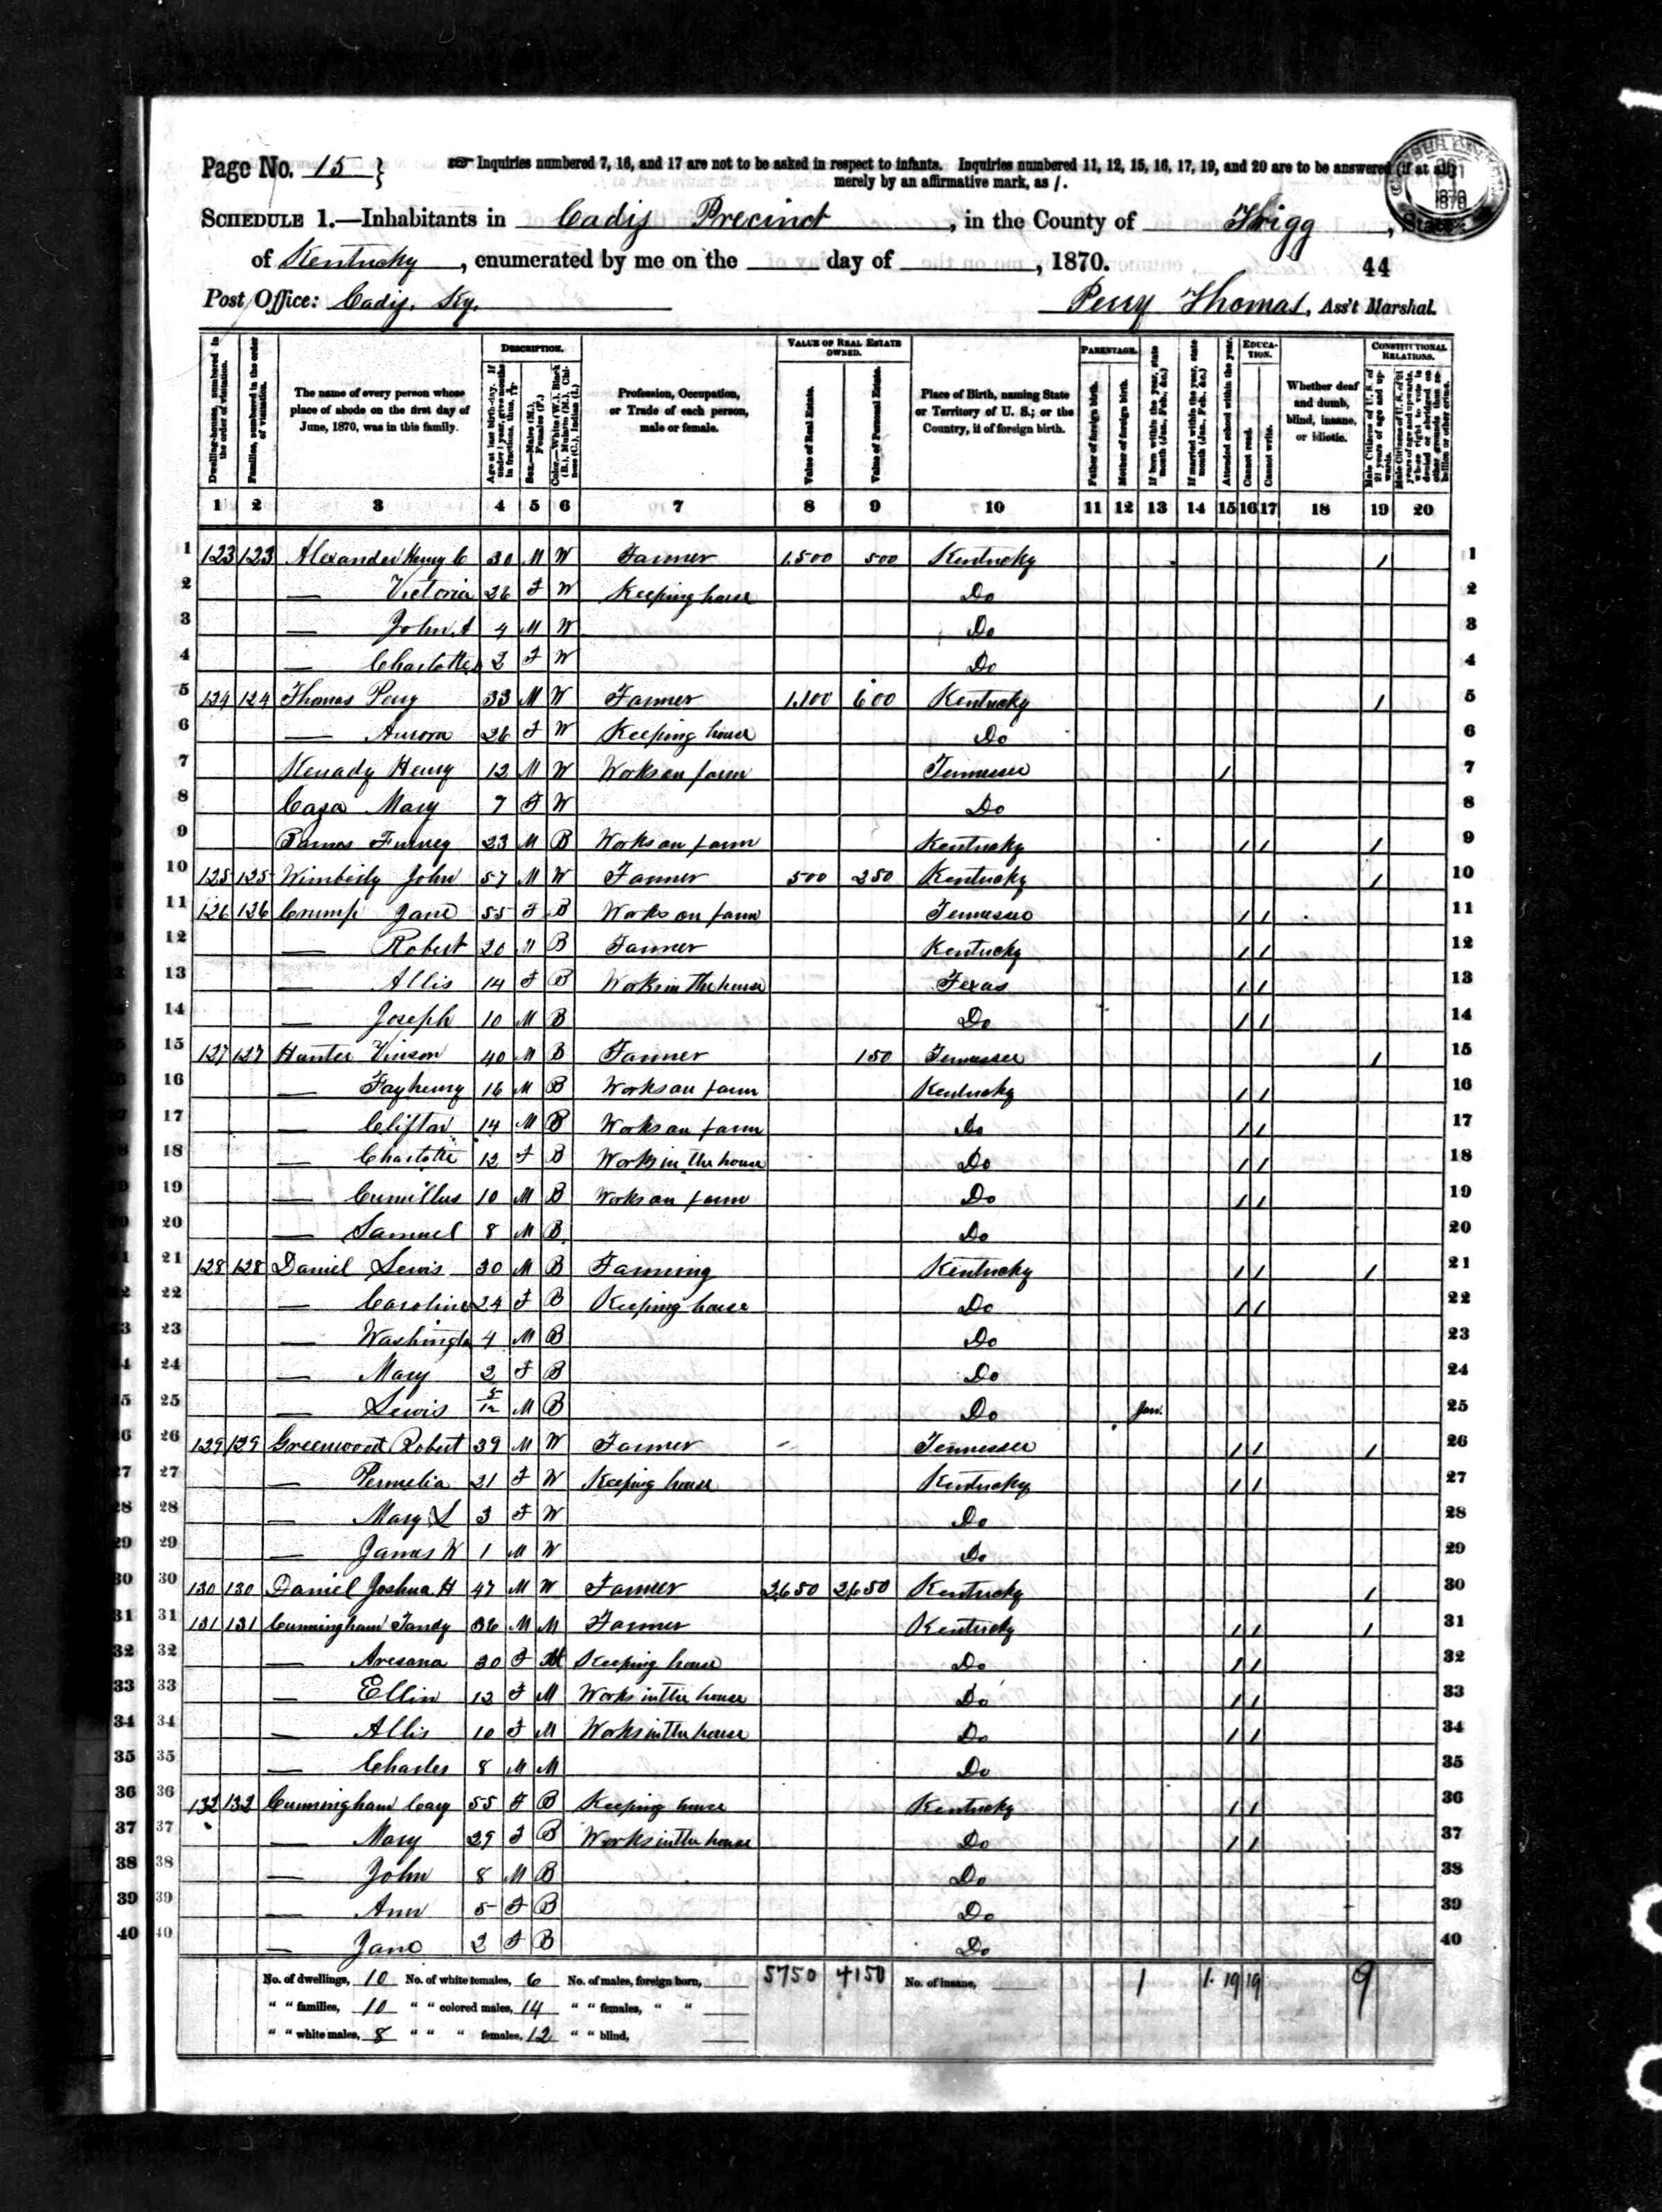 Page No. 15 } Inquiries numbered 7, 16, and 17 are not to be asked in respect to infants. Inquiries numbered 11, 12, 15, 16, 17, 19, and 20 are to be answered (if at all)
merely by an affirmative mark, as /.
SCHEDULE 1.—Inhabitants in Cadiz Precinct, in the County of Trigg, State
of Kentucky, enumerated by me on the ___ day of ___, 1870. 44
Post Office: Cadiz, Ky. Perry Thomas, Ass't Marshal.
Dwelling-houses, numbered in the order of visitation.
Families, numbered in the order of visitation.
The name of every person whose place of abode on the first day of June, 1870, was in this family.
DESCRIPTION.
Age at last birth-day. If under 1 year, give months in fractions, thus,
Sex.—Males (M.), Females (F.)
Color.—White (W.), Black (B.), Mulatto (M.), Chinese (C.), Indian (I.)
Profession, Occupation, or Trade of each person, male or female.
VALUE OF REAL ESTATE OWNED.
Value of Real Estate.
Value of Personal Estate.
Place of Birth, naming State or Territory of U. S.; or the Country, if of foreign birth.
PARENTAGE.
Father of foreign birth.
Mother of foreign birth.
If born within the year, state month (Jan., Feb., &c.)
If married within the year, state month (Jan., Feb., &c.)
Attended school within the year.
EDUCATION.
Cannot read.
Cannot write.
Whether deaf and dumb, blind, insane, or idiotic.
CONSTITUTIONAL RELATIONS.
Male Citizens of U. S. of 21 years of age and upwards.
Male Citizens of U. S. of 21 years of age and upwards, whose right to vote is denied or abridged on other grounds than rebellion or other crime.
1 2 3 4 5 6 7 8 9 10 11 12 13 14 15 16 17 18 19 20
1 123 123 Alexander Henry C 30 M W Farmer 1.500 500 Kentucky / 1
2 — Victoria 26 F W Keeping house Do 2
3 — John A 4 M W Do 3
4 — Charlotte 2 F W Do 4
5 124 124 Thomas Perry 33 M W Farmer 1.100 600 Kentucky / 5
6 — Aurora 26 F W Keeping house Do 6
7 Kenady Henry 12 M W Works on farm Tennessee / 7
8 Mary 7 F W Do 8
9 23 M B Works on farm Kentucky / / / 9
10 125 125 Wimberly John 57 M W Farmer 500 250 Kentucky / 10
11 126 126 Crump Jane 55 F B Works on farm Tennessee / / 11
12 — Robert 20 M B Farmer Kentucky / / 12
13 — Allis 14 F B Works in the house Texas / / 13
14 — Joseph 10 M B Do / / 14
15 127 127 Hunter Vinson 40 M B Farmer 150 Tennessee / 15
16 — Fayhenry 16 M B Works on farm Kentucky / / 16
17 — Clifton 14 M B Works on farm Do / / 17
18 — Charlotte 12 F B Works in the house Do / / 18
19 — Cumillus 10 M B Works on farm Do / / 19
20 — Samuel 8 M B Do 20
21 128 128 Daniel Lewis 30 M B Farming Kentucky / / / 21
22 — Caroline 24 F B Keeping house Do / / 22
23 — Washington 4 M B Do 23
24 — Mary 2 F B Do 24
25 — Lewis 5/12 M B Do Jan. 25
26 129 129 Greenwood Robert 39 M W Farmer Tennessee / / / 26
27 — Permelia 21 F W Keeping house Kentucky / / 27
28 — Mary L 3 F W Do 28
29 — James W 1 M W Do 29
30 130 130 Daniel Joshua H 47 M W Farmer 2,650 2,650 Kentucky / 30
31 131 131 Cunningham Tandy 36 M M Farmer Kentucky / / / 31
32 — Aresana 30 F M Keeping house Do / / 32
33 — Ellin 12 F M Works in the house Do / / 33
34 — Allis 10 F M Works in the house Do / / 34
35 — Charles 8 M M Do 35
36 132 132 Cunningham Cary 55 F B Keeping house Kentucky / / 36
37 — Mary 29 F B Works in the house Do / / 37
38 — John 8 M B Do 38
39 — Ann 5 F B Do 39
40 — Jane 2 F B Do 40
No. of dwellings, 10 No. of white females, 6 No. of males, foreign born, 5750 4150 No. of insane, 1 1 19 19 9
" " families, 10 " " colored males, 14 " " females, " "
" " white males, 8 " " " females, 12 " " blind,